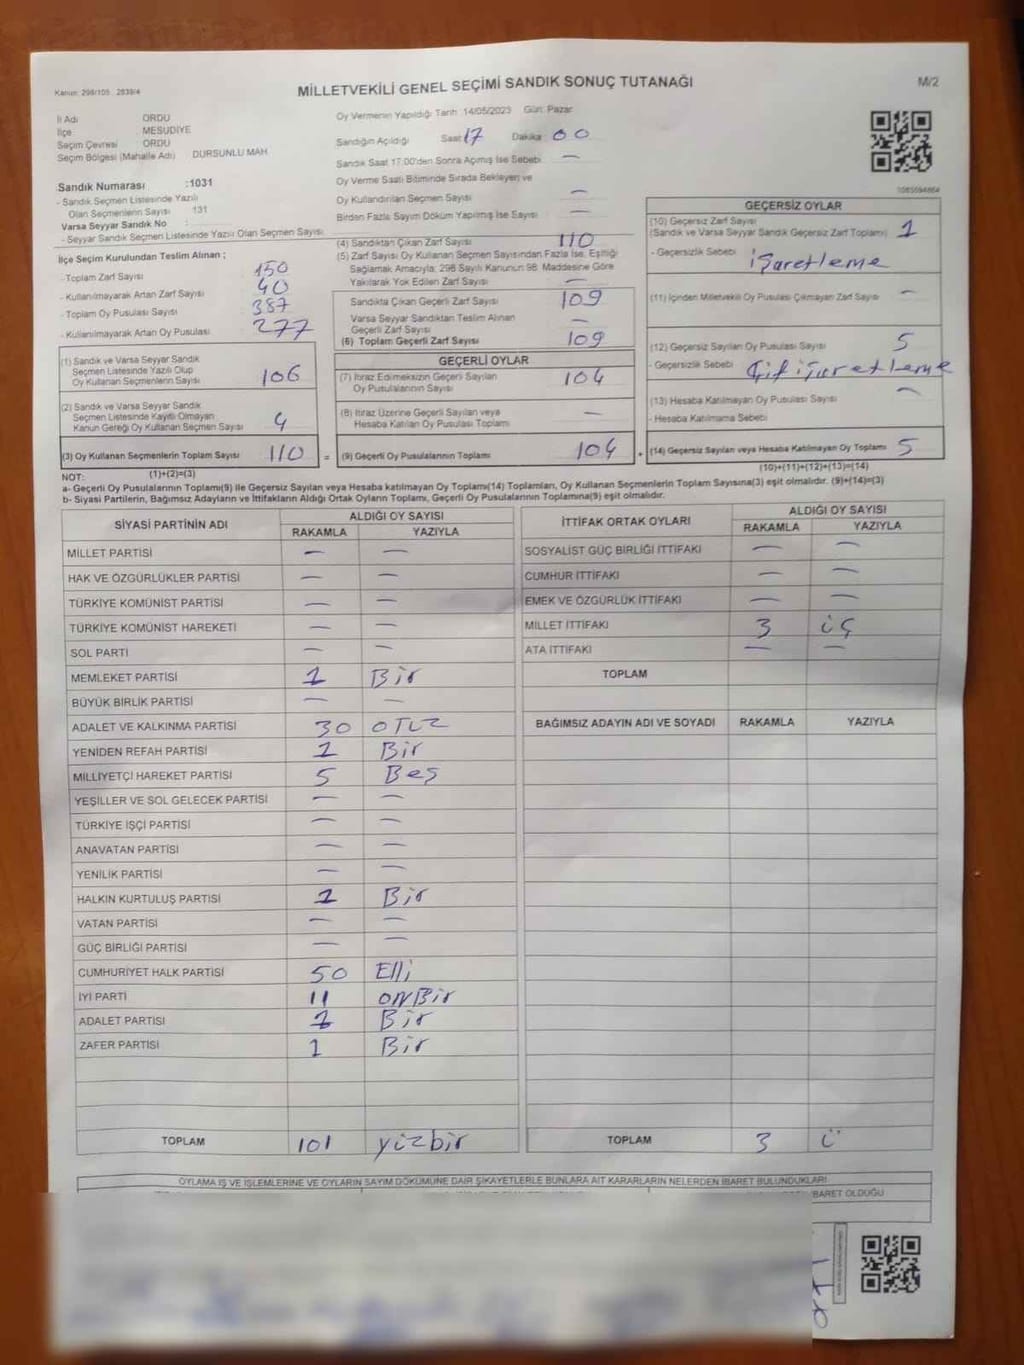 Kanun: 298/105 2839/4
MİLLETVEKİLİ GENEL SEÇİMİ SANDIK SONUÇ TUTANAĞI
M/2
İl Adı ORDU
İlçe MESUDİYE
Seçim Çevresi ORDU
Seçim Bölgesi (Mahalle Adı) DURSUNLU MAH
Sandık Numarası :1031
- Sandık Seçmen Listesinde Yazılı
Olan Seçmenlerin Sayısı 131
Varsa Seyyar Sandık No :
- Seyyar Sandık Seçmen Listesinde Yazılı Olan Seçmen Sayısı
Oy Vermenin Yapıldığı Tarih: 14/05/2023 Gün: Pazar
Sandığın Açıldığı Saat 17 Dakika 00
Sandık Saat 17.00'den Sonra Açımış İse Sebebi —
Oy Verme Saati Bitiminde Sırada Bekleyen ve
Oy Kullandırılan Seçmen Sayısı —
Birden Fazla Sayım Döküm Yapılmış İse Sayısı —
1085594864
İlçe Seçim Kurulundan Teslim Alınan ;
- Toplam Zarf Sayısı 150
- Kullanılmayarak Artan Zarf Sayısı 40
- Toplam Oy Pusulası Sayısı 387
- Kullanılmayarak Artan Oy Pusulası 277
(1) Sandık ve Varsa Seyyar Sandık
Seçmen Listesinde Yazılı Olup
Oy Kullanan Seçmenlerin Sayısı 106
(2) Sandık ve Varsa Seyyar Sandık
Seçmen Listesinde Kayıtlı Olmayan
Kanun Gereği Oy Kullanan Seçmen Sayısı 4
(3) Oy Kullanan Seçmenlerin Toplam Sayısı 110 =
(4) Sandıktan Çıkan Zarf Sayısı 110
(5) Zarf Sayısı Oy Kullanan Seçmen Sayısından Fazla İse, Eşitliği
Sağlamak Amacıyla; 298 Sayılı Kanunun 98. Maddesine Göre
Yakılarak Yok Edilen Zarf Sayısı —
Sandıkta Çıkan Geçerli Zarf Sayısı 109
Varsa Seyyar Sandıktan Teslim Alınan
Geçerli Zarf Sayısı —
(6) Toplam Geçerli Zarf Sayısı 109
GEÇERLİ OYLAR
(7) İtiraz Edilmeksizin Geçerli Sayılan
Oy Pusulalarının Sayısı 104
(8) İtiraz Üzerine Geçerli Sayılan veya
Hesaba Katılan Oy Pusulası Toplamı —
(9) Geçerli Oy Pusulalarının Toplamı 104 +
GEÇERSİZ OYLAR
(10) Geçersiz Zarf Sayısı
(Sandık ve Varsa Seyyar Sandık Geçersiz Zarf Toplamı) 1
- Geçersizlik Sebebi işaretleme
(11) İçinden Milletvekili Oy Pusulası Çıkmayan Zarf Sayısı —
(12) Geçersiz Sayılan Oy Pusulası Sayısı 5
- Geçersizlik Sebebi Çift işaretleme
(13) Hesaba Katılmayan Oy Pusulası Sayısı —
- Hesaba Katılmama Sebebi
(14) Geçersiz Sayılan veya Hesaba Katılmayan Oy Toplamı 5
NOT: (1)+(2)=(3) (10)+(11)+(12)+(13)=(14)
a- Geçerli Oy Pusulalarının Toplamı(9) ile Geçersiz Sayılan veya Hesaba katılmayan Oy Toplamı(14) Toplamları, Oy Kullanan Seçmenlerin Toplam Sayısına(3) eşit olmalıdır. (9)+(14)=(3)
b- Siyasi Partilerin, Bağımsız Adayların ve İttifakların Aldığı Ortak Oyların Toplamı, Geçerli Oy Pusulalarının Toplamına(9) eşit olmalıdır.
SİYASİ PARTİNİN ADI ALDIĞI OY SAYISI
RAKAMLA YAZIYLA
MİLLET PARTİSİ — —
HAK VE ÖZGÜRLÜKLER PARTİSİ — —
TÜRKİYE KOMÜNİST PARTİSİ — —
TÜRKİYE KOMÜNİST HAREKETİ — —
SOL PARTİ — —
MEMLEKET PARTİSİ 1 Bir
BÜYÜK BİRLİK PARTİSİ — —
ADALET VE KALKINMA PARTİSİ 30 OTUZ
YENİDEN REFAH PARTİSİ 1 Bir
MİLLİYETÇİ HAREKET PARTİSİ 5 Beş
YEŞİLLER VE SOL GELECEK PARTİSİ — —
TÜRKİYE İŞÇİ PARTİSİ — —
ANAVATAN PARTİSİ — —
YENİLİK PARTİSİ — —
HALKIN KURTULUŞ PARTİSİ 1 Bir
VATAN PARTİSİ — —
GÜÇ BİRLİĞİ PARTİSİ — —
CUMHURİYET HALK PARTİSİ 50 Elli
İYİ PARTİ 11 onBir
ADALET PARTİSİ 1 Bir
ZAFER PARTİSİ 1 Bir
TOPLAM 101 yüzbir
İTTİFAK ORTAK OYLARI ALDIĞI OY SAYISI
RAKAMLA YAZIYLA
SOSYALİST GÜÇ BİRLİĞİ İTTİFAKI — —
CUMHUR İTTİFAKI — —
EMEK VE ÖZGÜRLÜK İTTİFAKI — —
MİLLET İTTİFAKI 3 üç
ATA İTTİFAKI — —
TOPLAM
BAĞIMSIZ ADAYIN ADI VE SOYADI RAKAMLA YAZIYLA
TOPLAM 3 ü
OYLAMA İŞ VE İŞLEMLERİNE VE OYLARIN SAYIM DÖKÜMÜNE DAİR ŞİKAYETLERLE BUNLARA AİT KARARLARIN NELERDEN İBARET BULUNDUKLARI
İBARET OLDUĞU